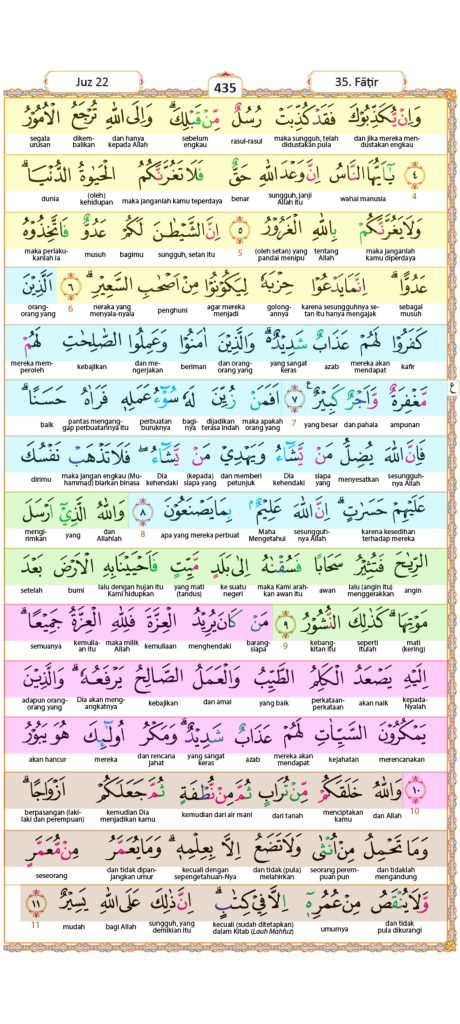 Juz 22
435
35. Fāṭir
وَاِنْ يُّكَذِّبُوْكَ فَقَدْ كُذِّبَتْ رُسُلٌ مِّنْ قَبْلِكَۗ وَاِلَى اللّٰهِ تُرْجَعُ الْاُمُوْرُ
dan jika mereka mendustakan engkau maka sungguh, telah didustakan pula rasul-rasul sebelum engkau dan hanya kepada Allah dikembalikan segala urusan
٤ يٰٓاَيُّهَا النَّاسُ اِنَّ وَعْدَ اللّٰهِ حَقٌّ فَلَا تَغُرَّنَّكُمُ الْحَيٰوةُ الدُّنْيَاۗ
4 wahai manusia sungguh, janji Allah itu benar maka janganlah kamu teperdaya (oleh) kehidupan dunia
وَلَا يَغُرَّنَّكُمْ بِاللّٰهِ الْغَرُوْرُ ٥ اِنَّ الشَّيْطٰنَ لَكُمْ عَدُوٌّ فَاتَّخِذُوْهُ
maka janganlah kamu diperdaya tentang Allah (oleh setan) yang pandai menipu 5 sungguh, setan itu bagimu musuh maka perlakukanlah ia
عَدُوًّاۗ اِنَّمَا يَدْعُوْا حِزْبَهٗ لِيَكُوْنُوْا مِنْ اَصْحٰبِ السَّعِيْرِۗ ٦ اَلَّذِيْنَ
sebagai musuh karena sesungguhnya setan itu hanya mengajak golongannya agar mereka menjadi penghuni neraka yang menyala-nyala 6 orang-orang yang
كَفَرُوْا لَهُمْ عَذَابٌ شَدِيْدٌ ۗوَالَّذِيْنَ اٰمَنُوْا وَعَمِلُوا الصّٰلِحٰتِ لَهُمْ
kafir mereka akan mendapat azab yang sangat keras dan orang-orang yang beriman dan mengerjakan kebajikan mereka memperoleh
مَّغْفِرَةٌ وَّاَجْرٌ كَبِيْرٌ ࣖ ٧ اَفَمَنْ زُيِّنَ لَهٗ سُوْۤءُ عَمَلِهٖ فَرَاٰهُ حَسَنًاۗ
ع
ampunan dan pahala yang besar 7 maka apakah orang yang dijadikan terasa indah baginya perbuatan buruknya pantas menganggap perbuatannya itu baik
فَاِنَّ اللّٰهَ يُضِلُّ مَنْ يَّشَاۤءُ وَيَهْدِيْ مَنْ يَّشَاۤءُۖ فَلَا تَذْهَبْ نَفْسُكَ
sesungguhnya Allah menyesatkan siapa yang Dia kehendaki dan memberi petunjuk (kepada) siapa yang Dia kehendaki maka jangan engkau (Muhammad) biarkan binasa dirimu
عَلَيْهِمْ حَسَرٰتٍۗ اِنَّ اللّٰهَ عَلِيْمٌ ۢ بِمَا يَصْنَعُوْنَ ٨ وَاللّٰهُ الَّذِيْٓ اَرْسَلَ
terhadap mereka karena kesedihan sesungguhnya Allah Maha Mengetahui apa yang mereka perbuat 8 dan Allahlah yang mengirimkan
الرِّيٰحَ فَتُثِيْرُ سَحَابًا فَسُقْنٰهُ اِلٰى بَلَدٍ مَّيِّتٍ فَاَحْيَيْنَا بِهِ الْاَرْضَ بَعْدَ
angin lalu (angin itu) menggerakkan awan maka Kami arahkan awan itu ke suatu negeri yang mati (tandus) lalu dengan hujan itu Kami hidupkan bumi setelah
مَوْتِهَاۗ كَذٰلِكَ النُّشُوْرُ ٩ مَنْ كَانَ يُرِيْدُ الْعِزَّةَ فَلِلّٰهِ الْعِزَّةُ جَمِيْعًاۗ
mati (kering) seperti itulah kebangkitan itu 9 barangsiapa menghendaki kemuliaan maka milik Allah kemuliaan itu semuanya
اِلَيْهِ يَصْعَدُ الْكَلِمُ الطَّيِّبُ وَالْعَمَلُ الصَّالِحُ يَرْفَعُهٗ ۗوَالَّذِيْنَ
kepada-Nyalah akan naik perkataan-perkataan yang baik dan amal kebajikan Dia akan mengangkatnya adapun orang-orang yang
يَمْكُرُوْنَ السَّيِّاٰتِ لَهُمْ عَذَابٌ شَدِيْدٌ ۗوَمَكْرُ اُولٰۤىِٕكَ هُوَ يَبُوْرُ
merencanakan kejahatan mereka akan mendapat azab yang sangat keras dan rencana jahat mereka akan hancur
١٠ وَاللّٰهُ خَلَقَكُمْ مِّنْ تُرَابٍ ثُمَّ مِنْ نُّطْفَةٍ ثُمَّ جَعَلَكُمْ اَزْوَاجًاۗ
10 dan Allah menciptakan kamu dari tanah kemudian dari air mani kemudian Dia menjadikan kamu berpasangan (laki-laki dan perempuan)
وَمَا تَحْمِلُ مِنْ اُنْثٰى وَلَا تَضَعُ اِلَّا بِعِلْمِهٖۗ وَمَا يُعَمَّرُ مِنْ مُّعَمَّرٍ
dan tidaklah mengandung seorang perempuan pun dan tidak (pula) melahirkan kecuali dengan sepengetahuan-Nya dan tidak dipanjangkan umur seseorang
وَّلَا يُنْقَصُ مِنْ عُمُرِهٖٓ اِلَّا فِيْ كِتٰبٍۗ اِنَّ ذٰلِكَ عَلَى اللّٰهِ يَسِيْرٌ ١١
dan tidak pula dikurangi umurnya kecuali (sudah ditetapkan) dalam Kitab (Lauh Mahfuz) sungguh, yang demikian itu bagi Allah mudah 11